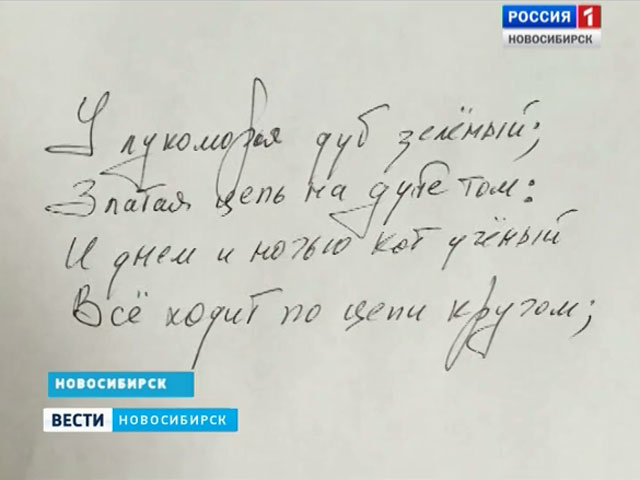 РОССИЯ 1
НОВОСИБИРСК
У лукоморья дуб зелёный;
Златая цепь на дубе том:
И днем и ночью кот учёный
Всё ходит по цепи кругом;
НОВОСИБИРСК
ВЕСТИ НОВОСИБИРСК